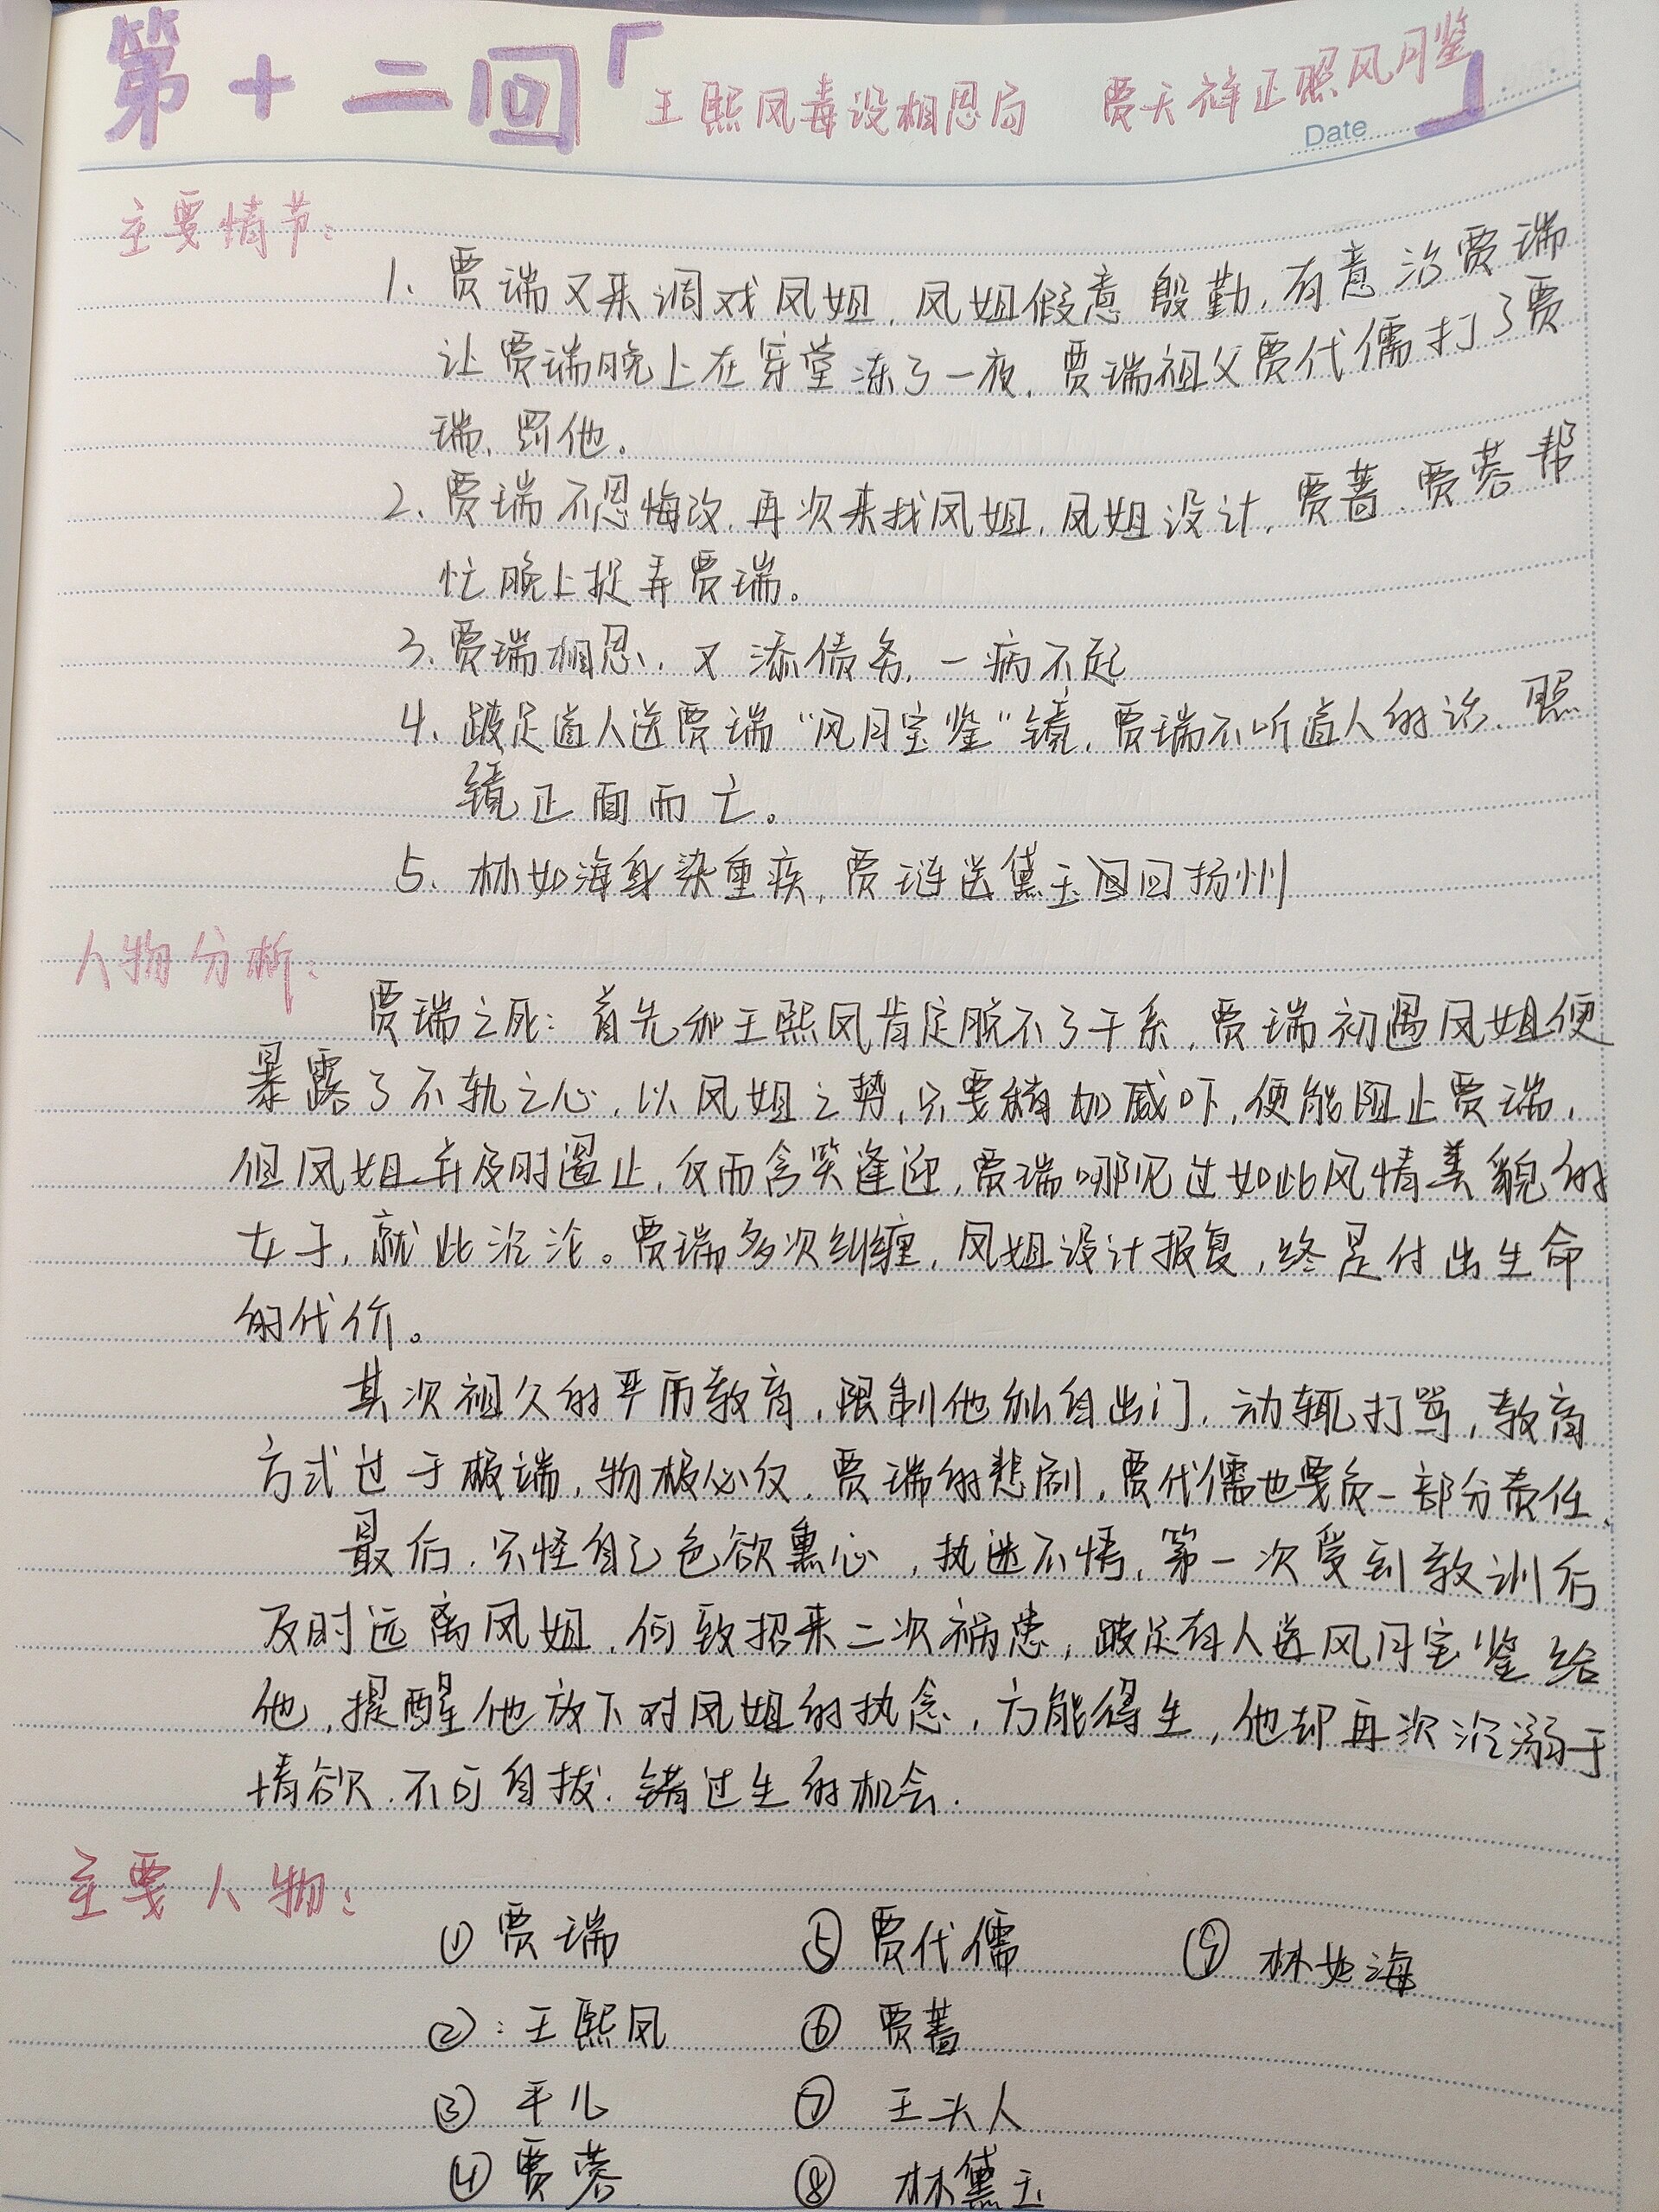 第十二回「王熙凤毒设相思局 贾天祥正照风月鉴」
Date
主要情节:
1、贾瑞又来调戏凤姐,凤姐假意殷勤,有意治贾瑞
让贾瑞晚上在穿堂冻了一夜,贾瑞祖父贾代儒打了贾
瑞,罚他。
2、贾瑞不思悔改,再次来找凤姐,凤姐设计,贾蔷、贾蓉帮
忙晚上捉弄贾瑞。
3、贾瑞相思,又添债务,一病不起
4、跛足道人送贾瑞“风月宝鉴”镜,贾瑞不听道人的话,照
镜正面而亡。
5、林如海身染重疾,贾琏送黛玉回扬州
人物分析:
贾瑞之死:首先和王熙凤肯定脱不了干系,贾瑞初遇凤姐便
暴露了不轨之心,以凤姐之势,只要稍加威吓,便能阻止贾瑞,
但凤姐并及时遏止,反而含笑逢迎,贾瑞哪见过如此风情美貌的
女子,就此沉沦。贾瑞多次纠缠,凤姐设计报复,终是付出生命
的代价。
其次祖父的严厉教育,限制他私自出门,动辄打骂,教育
方式过于极端,物极必反,贾瑞的悲剧,贾代儒也要负一部分责任、
最后,只怪自己色欲熏心,执迷不悟,第一次受到教训后
及时远离凤姐,何致招来二次祸患,跛足有人送风月宝鉴给
他,提醒他放下对凤姐的执念,方能得生,他却再次沉溺于
情欲,不可自拔,错过生的机会.
主要人物:
①贾瑞 ⑤贾代儒 ⑨林如海
②:王熙凤 ⑥贾蔷
③平儿 ⑦王夫人
④贾蓉 ⑧林黛玉